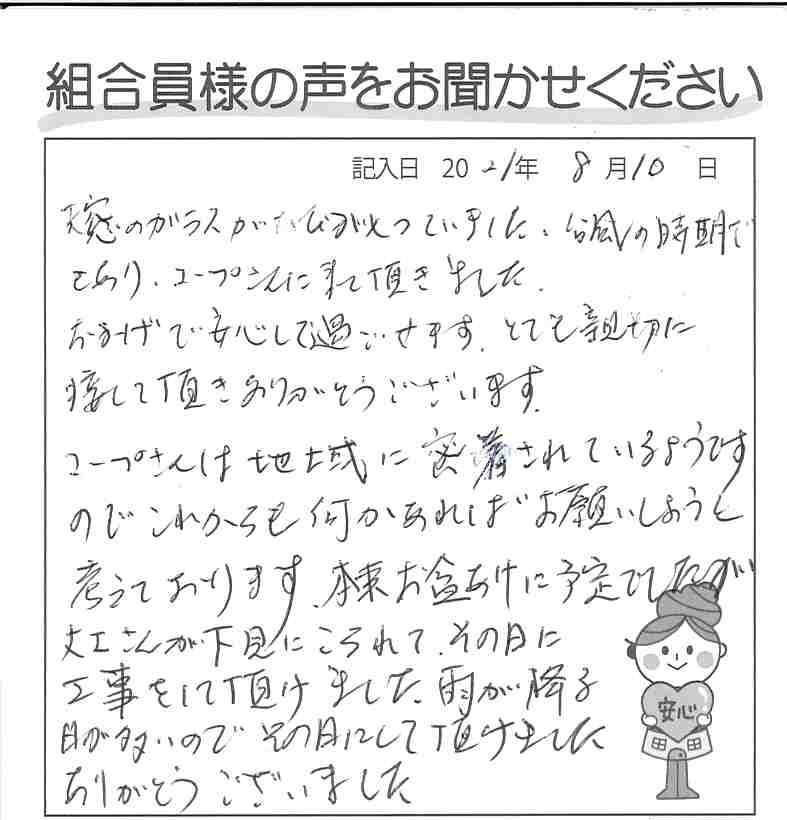 組合員様の声をお聞かせください
記入日 2021年 8月10日
天窓のガラスがたびがいっていました、台風の時期で
もあり、コープさんに来て頂きました。
おかげで安心して過ごせます。とても親切に
接して頂きありがとうございます。
コープさんは地域に密着されているようです
のでこれからも何かあればお願いしようと
考えております。本来お盆あけに予定でしたが
大工さんが下見にこられて、その日に
工事をして頂けました。雨が降る
日が多いのでその日にして頂けました
ありがとうございました
安心